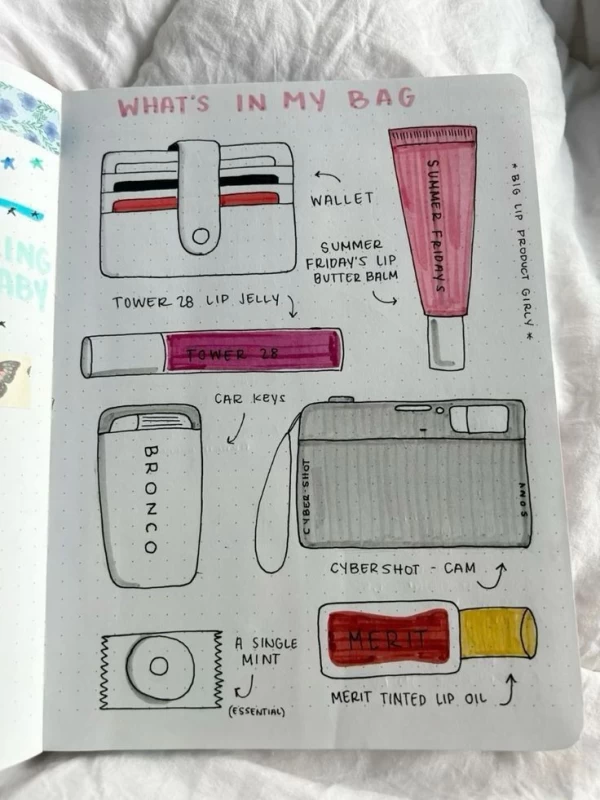 WHAT'S IN MY BAG
WALLET
SUMMER FRIDAYS
* BIG LIP PRODUCT GIRLY *
SUMMER
FRIDAY'S LIP
BUTTER BALM
TOWER 28 LIP JELLY
TOWER 28
CAR KEYS
BRONCO
CYBER-SHOT
SONY
CYBERSHOT - CAM
MERIT
A SINGLE
MINT
(ESSENTIAL)
MERIT TINTED LIP OIL
LING
ABY